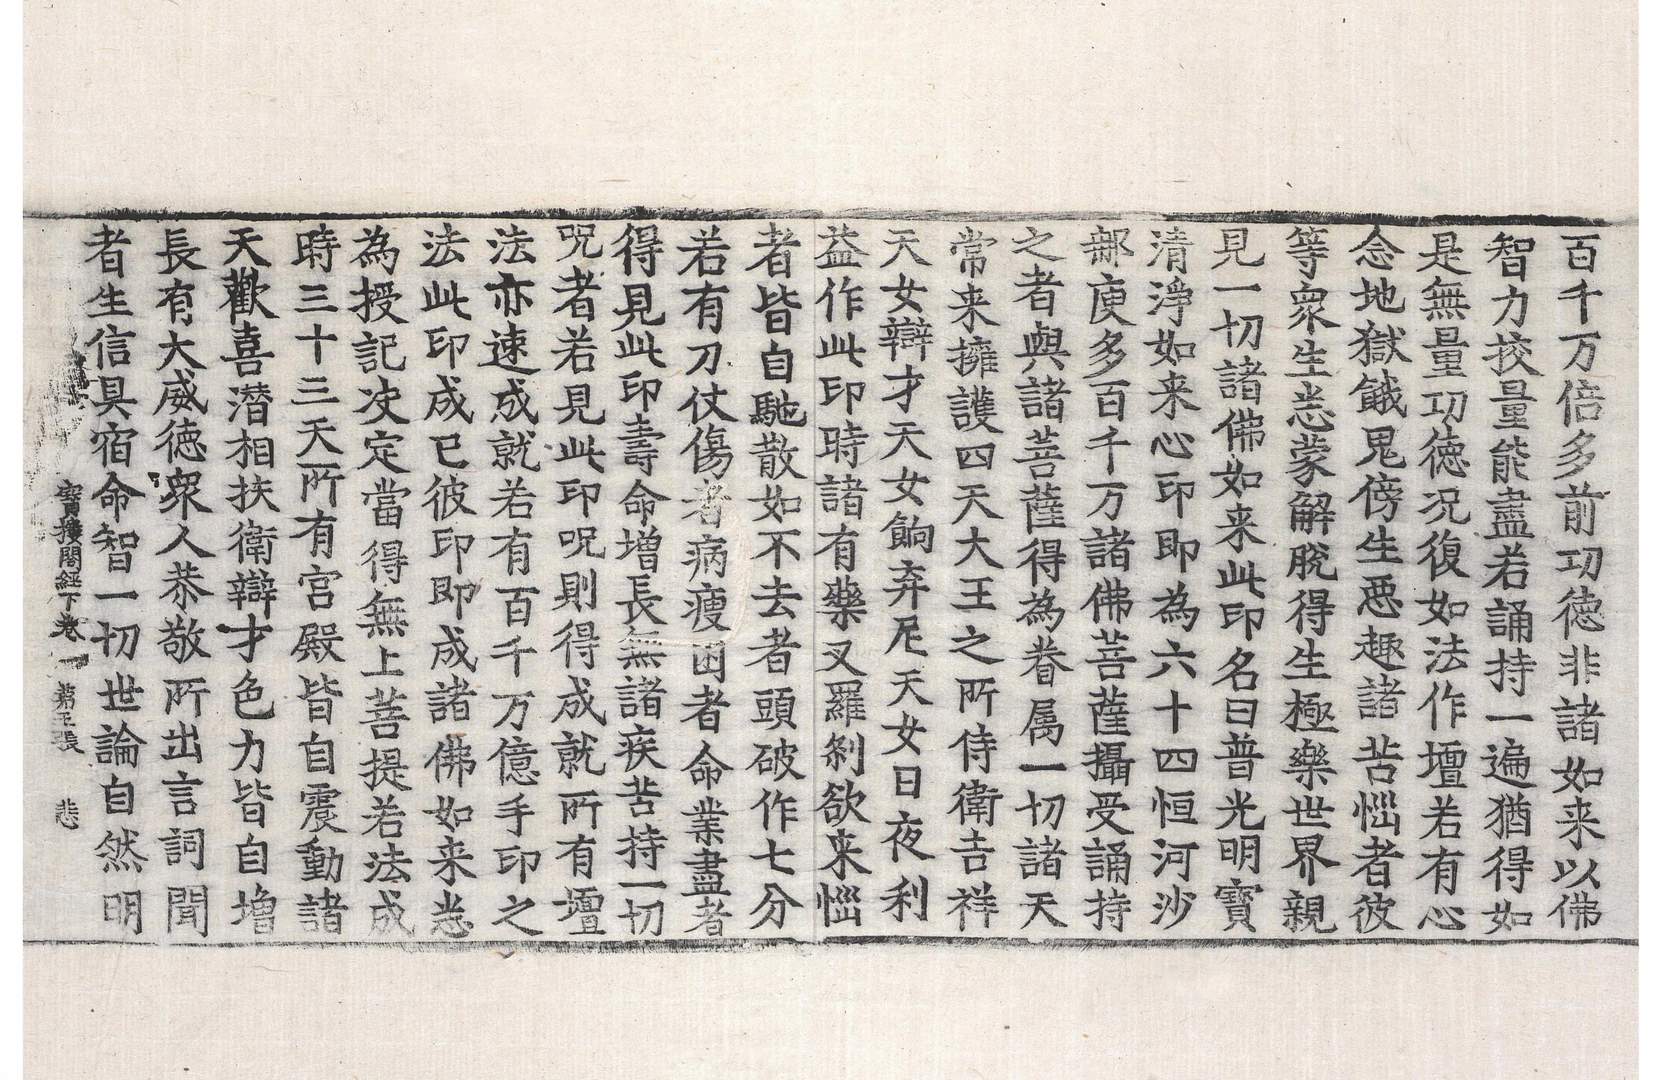 百千万倍多前功徳非諸如来以佛
智力挍量能盡若誦持一遍猶得如
是無量功徳况復如法作壇若有心
念地獄餓鬼傍生悪趣諸苦惱者彼
等衆生悉蒙解脫得生極樂世界親
見一切諸佛如来此印名曰普光明寳
清淨如来心印即為六十四恒河沙
那庾多百千万諸佛菩薩攝受誦持
之者與諸菩薩得為眷属一切諸天
常来擁護四天大王之所侍衛吉祥
天女辯才天女餉弃尼天女日夜利
益作此印時諸有藥叉羅剎欲来惱
者皆自馳散如不去者頭破作七分
若有刀仗傷者病瘦困者命業盡者
得見此印壽命增長無諸疾苦持一切
呪者若見此印呪則得成就所有壇
法亦速成就若有百千万億手印之
法此印成已彼印即成諸佛如来悉
為授記决定當得無上菩提若法成
時三十三天所有宮殿皆自震動諸
天歡喜潜相扶衛辯才色力皆自増
長有大威徳衆人恭敬所出言詞聞
者生信具宿命智一切世論自然明
寳樓閣経下卷 第五張 悲